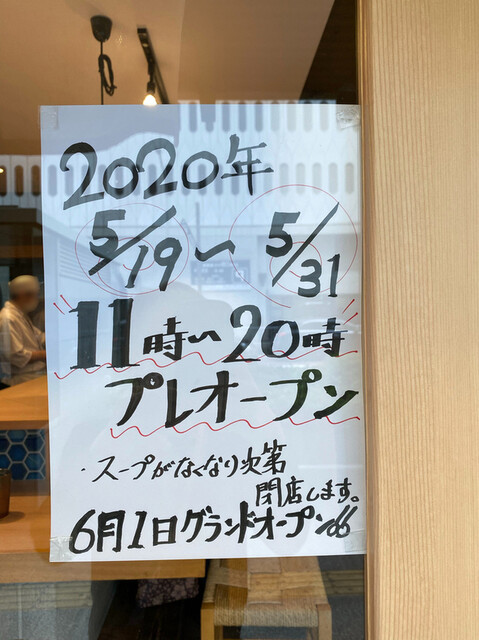 2020年
5/19〜5/31
11時〜20時
プレオープン
・スープがなくなり次第
閉店します。
6月1日グランドオープン